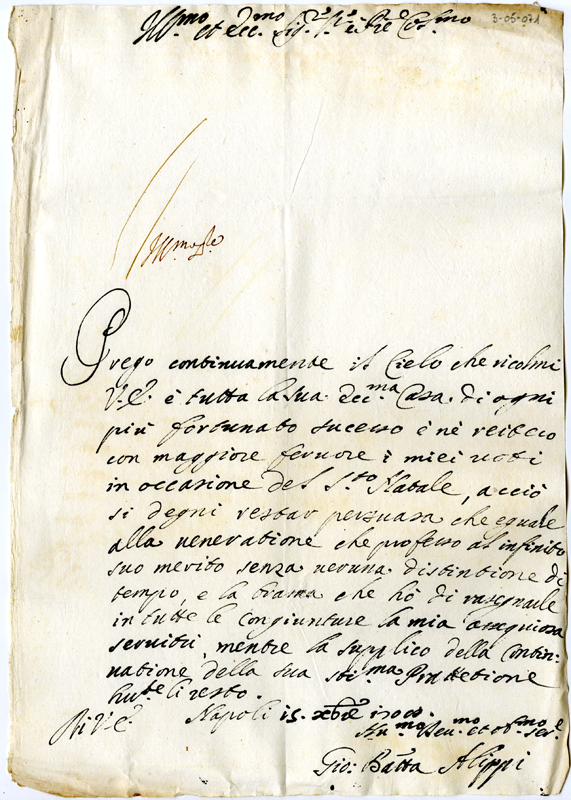 Ill.mo et Ecc.mo Sig.re P.re e Pne Col.mo
3-05-071
Prego continuamente il Cielo che ricolmi
V.E. è tutta la sua Ecc.ma Casa di ogni
più fortunato successo è nè reitero
con maggiore feruore i miei uoti
in occasione del S.to Natale, acciò
si degni restar persuasa che eguale
alla ueneratione che professo al infinito
suo merito senza ueruna distintione di
tempo, e la brama che hò di rasegnarle
in tutte le congiunture la mia ossequiosa
seruitù, mentre la supplico della Contin-
uatione della sua sti.ma Protettione
hu.te li resto.
Di V.E. Napoli 15. xbre 1700.
Hu.mo Deu.mo et ob.mo ser.e
Gio: Batta Alippi